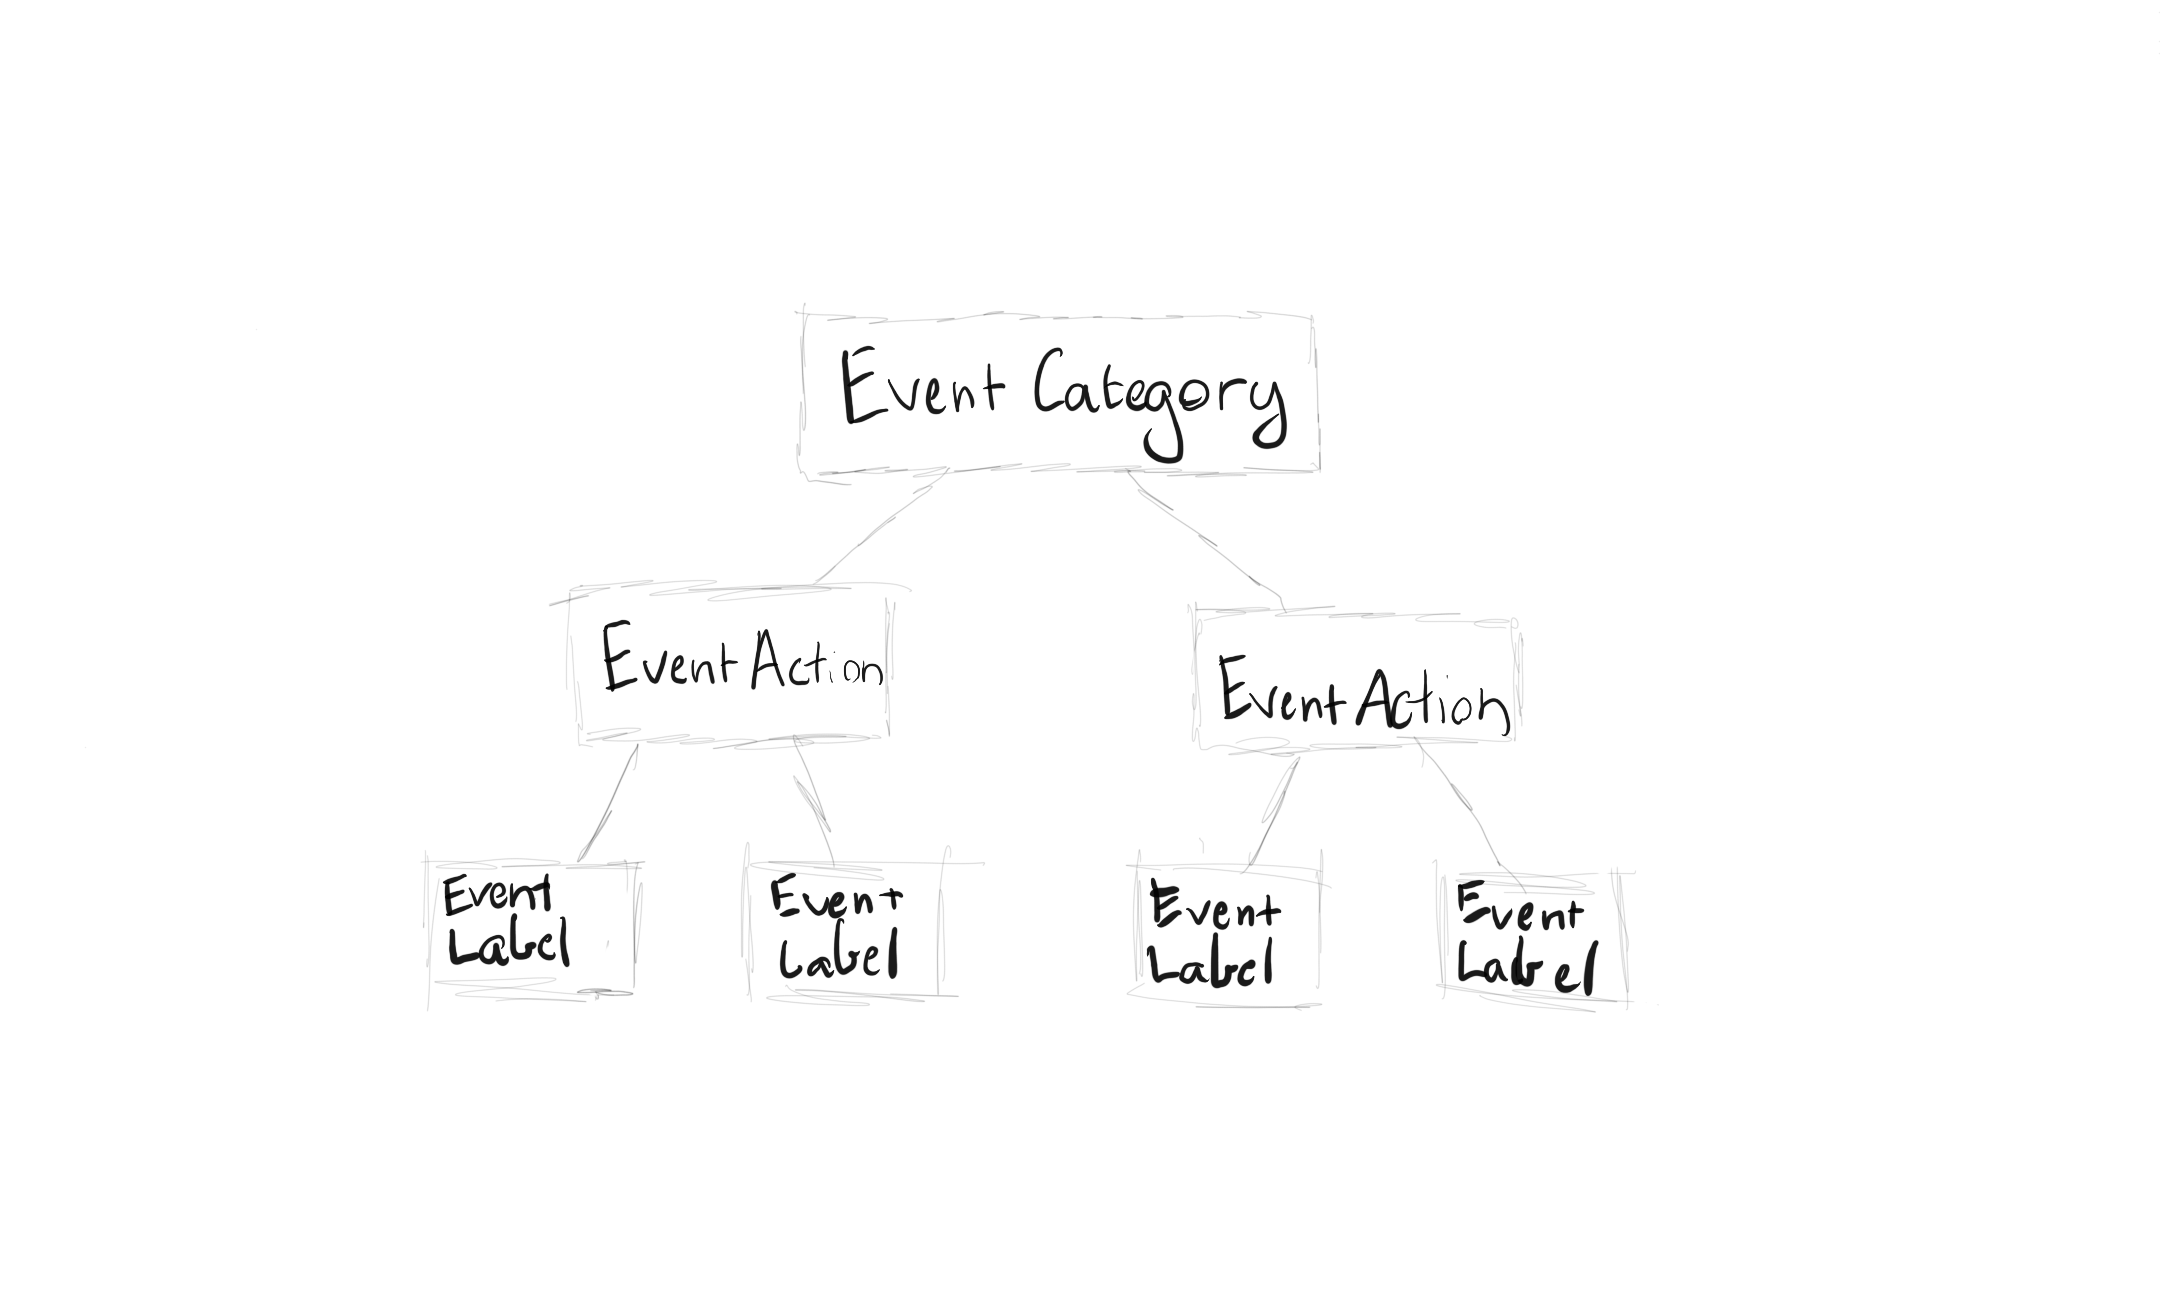 Event Category
Event Action
Event Action
Event
Label
Event
Label
Event
Label
Event
Label